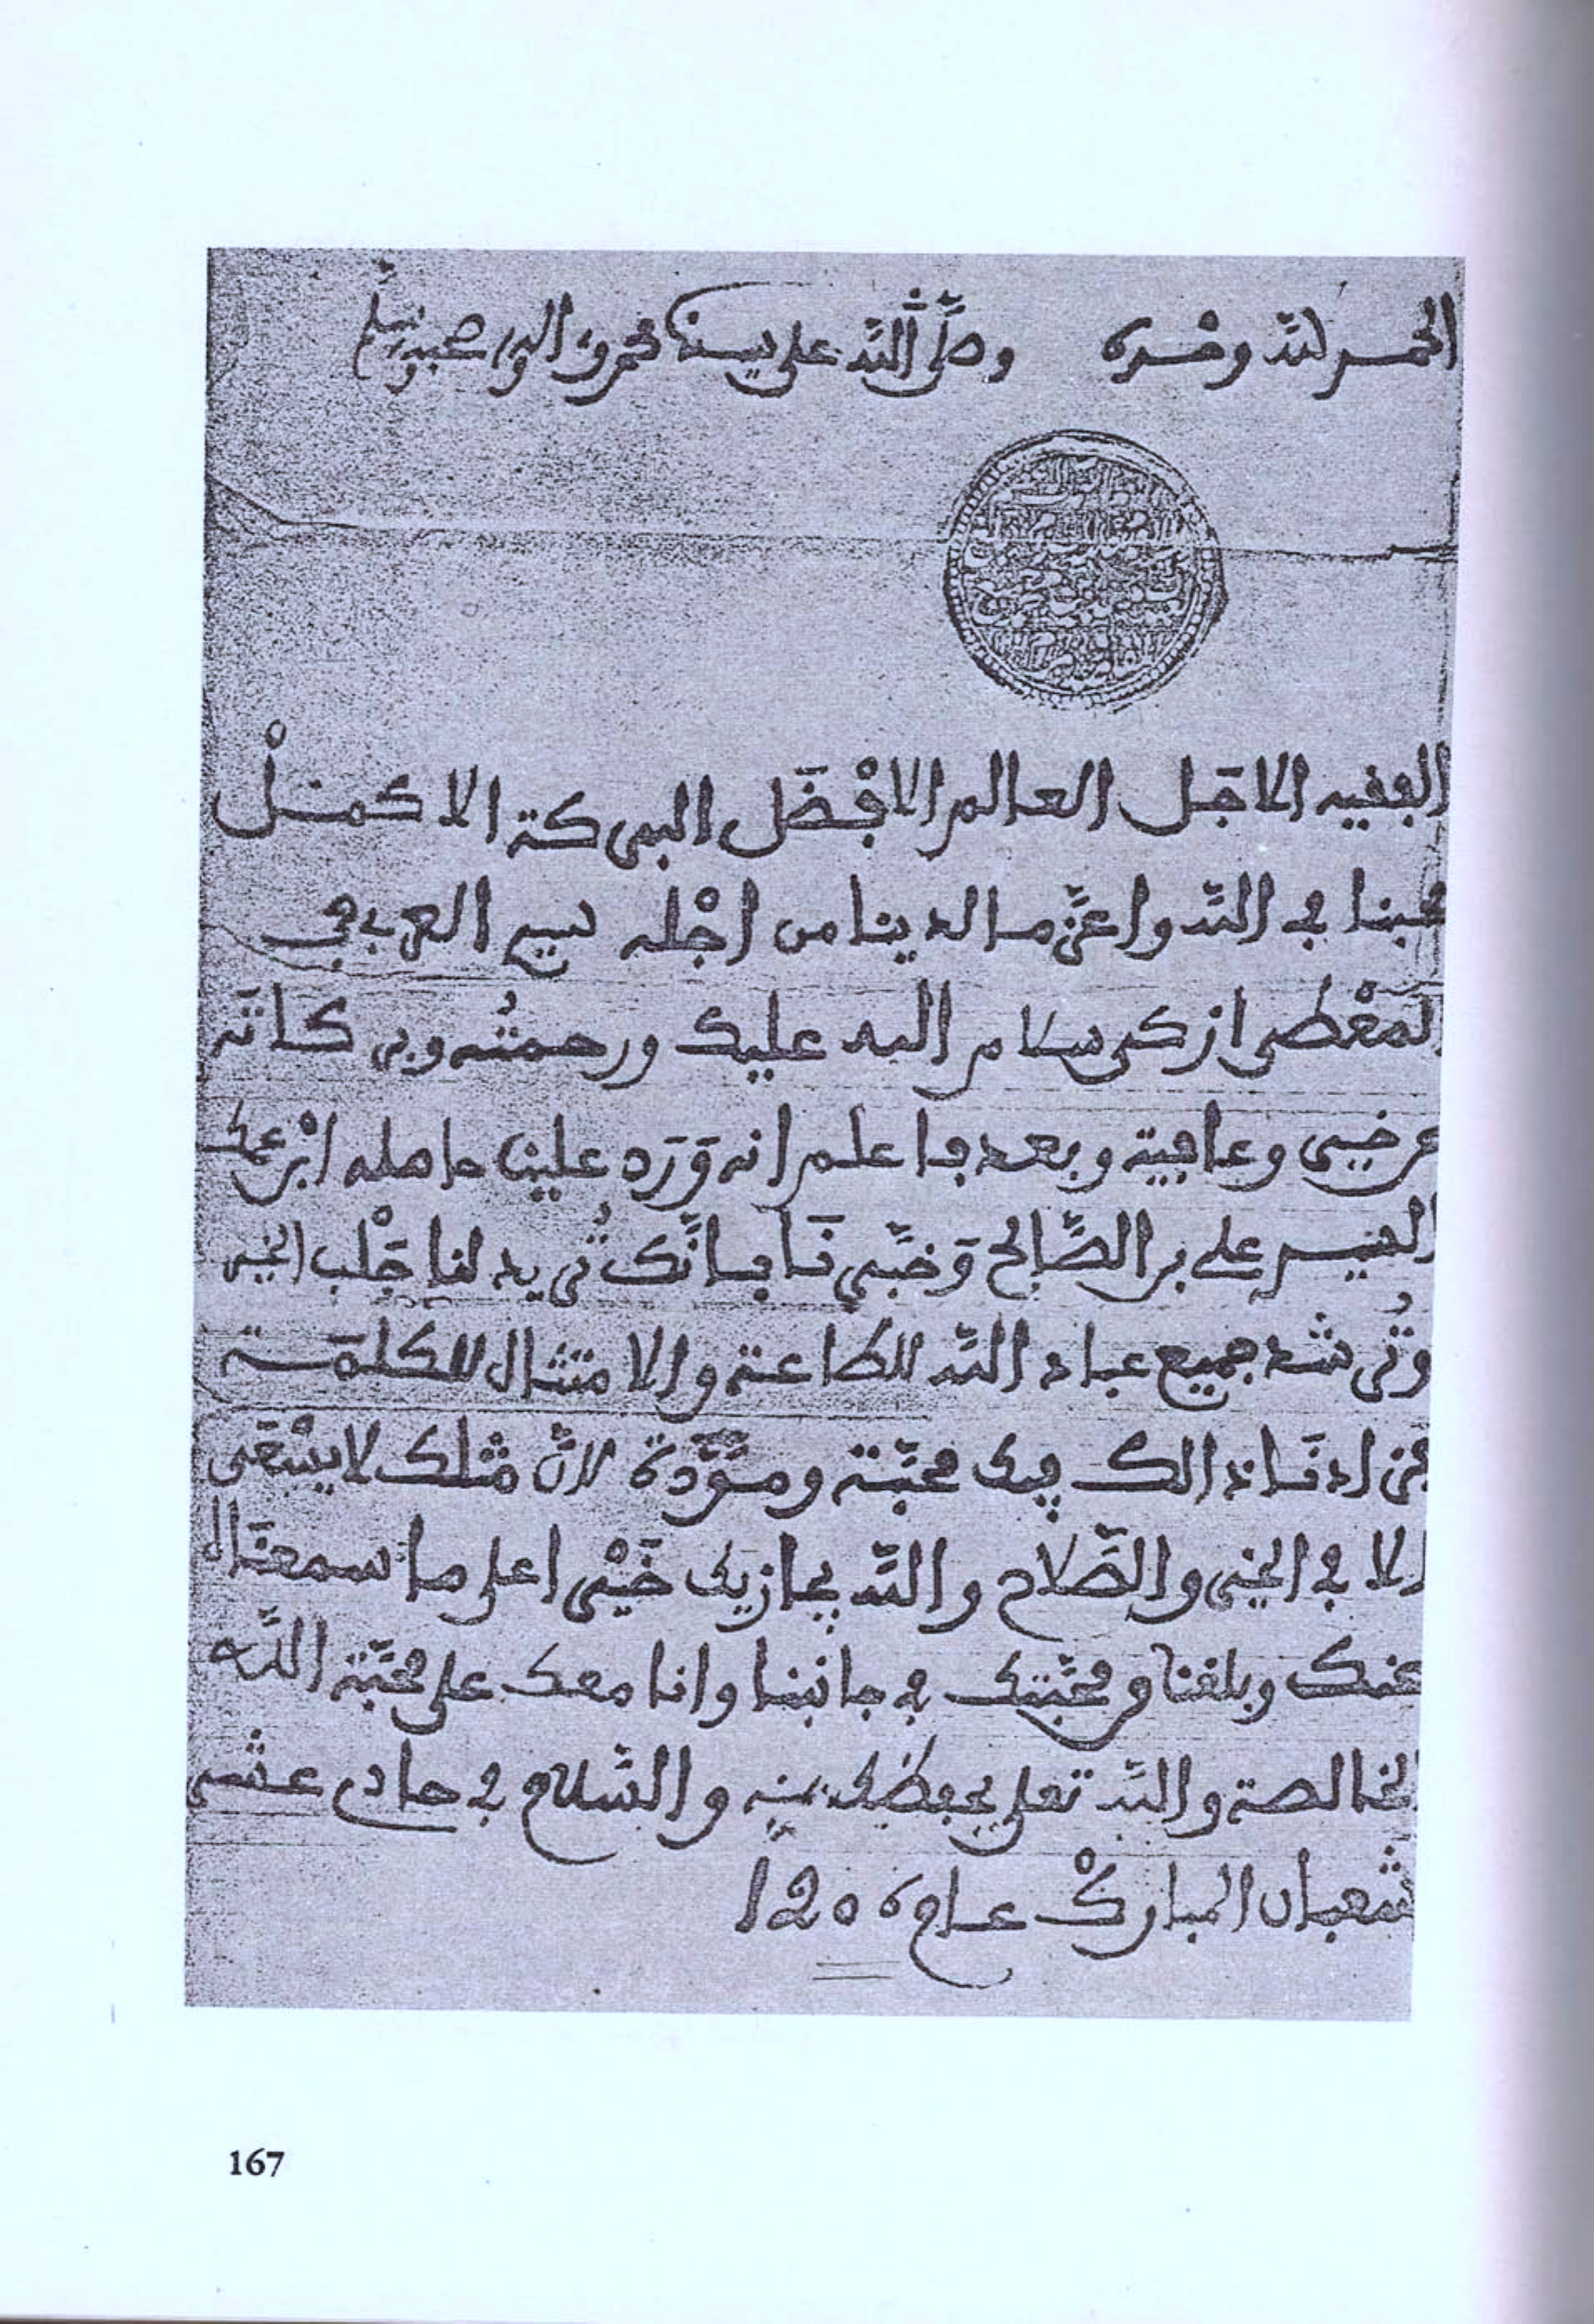 الحمد لله وحده وصلى الله على سيدنا محمد وءاله وصحبه وسلم
الفقيه الاجَل العالم الافْضَل البركة الاكمَلْ
محبنا في الله واعزّ ما لدينا من اجْله سيدي العربي
المعْطى ازكى سلام الله عليك ورحمتُه وبركاتَه
عن خير وعافية وبعد فاعلم انه وَرَد علينا حامله ابْن عمك
السيد علي بن الصَّالح وَخبَّرنَا بانَّك تُريد لنا جَلْب الخير
وتُرشد جميع عباد الله للطاعة والامتثال للكلمَة
فزادنَا ذالك فيك محبَّة ومَوَدّة لانّ مثلك لا يسْعَى
الا في الخير والصَّلاح والله يجازيك خَيْرا على ما سمعنَا
عنك وبلغنا ومحبَّتك في جانبنا وانا معك على محبَّة اللَّه
الخالصة والله تعلى يحفظك بمنه والسّلام في حادي عشر
شَعبان المباركْ عام 1206
167